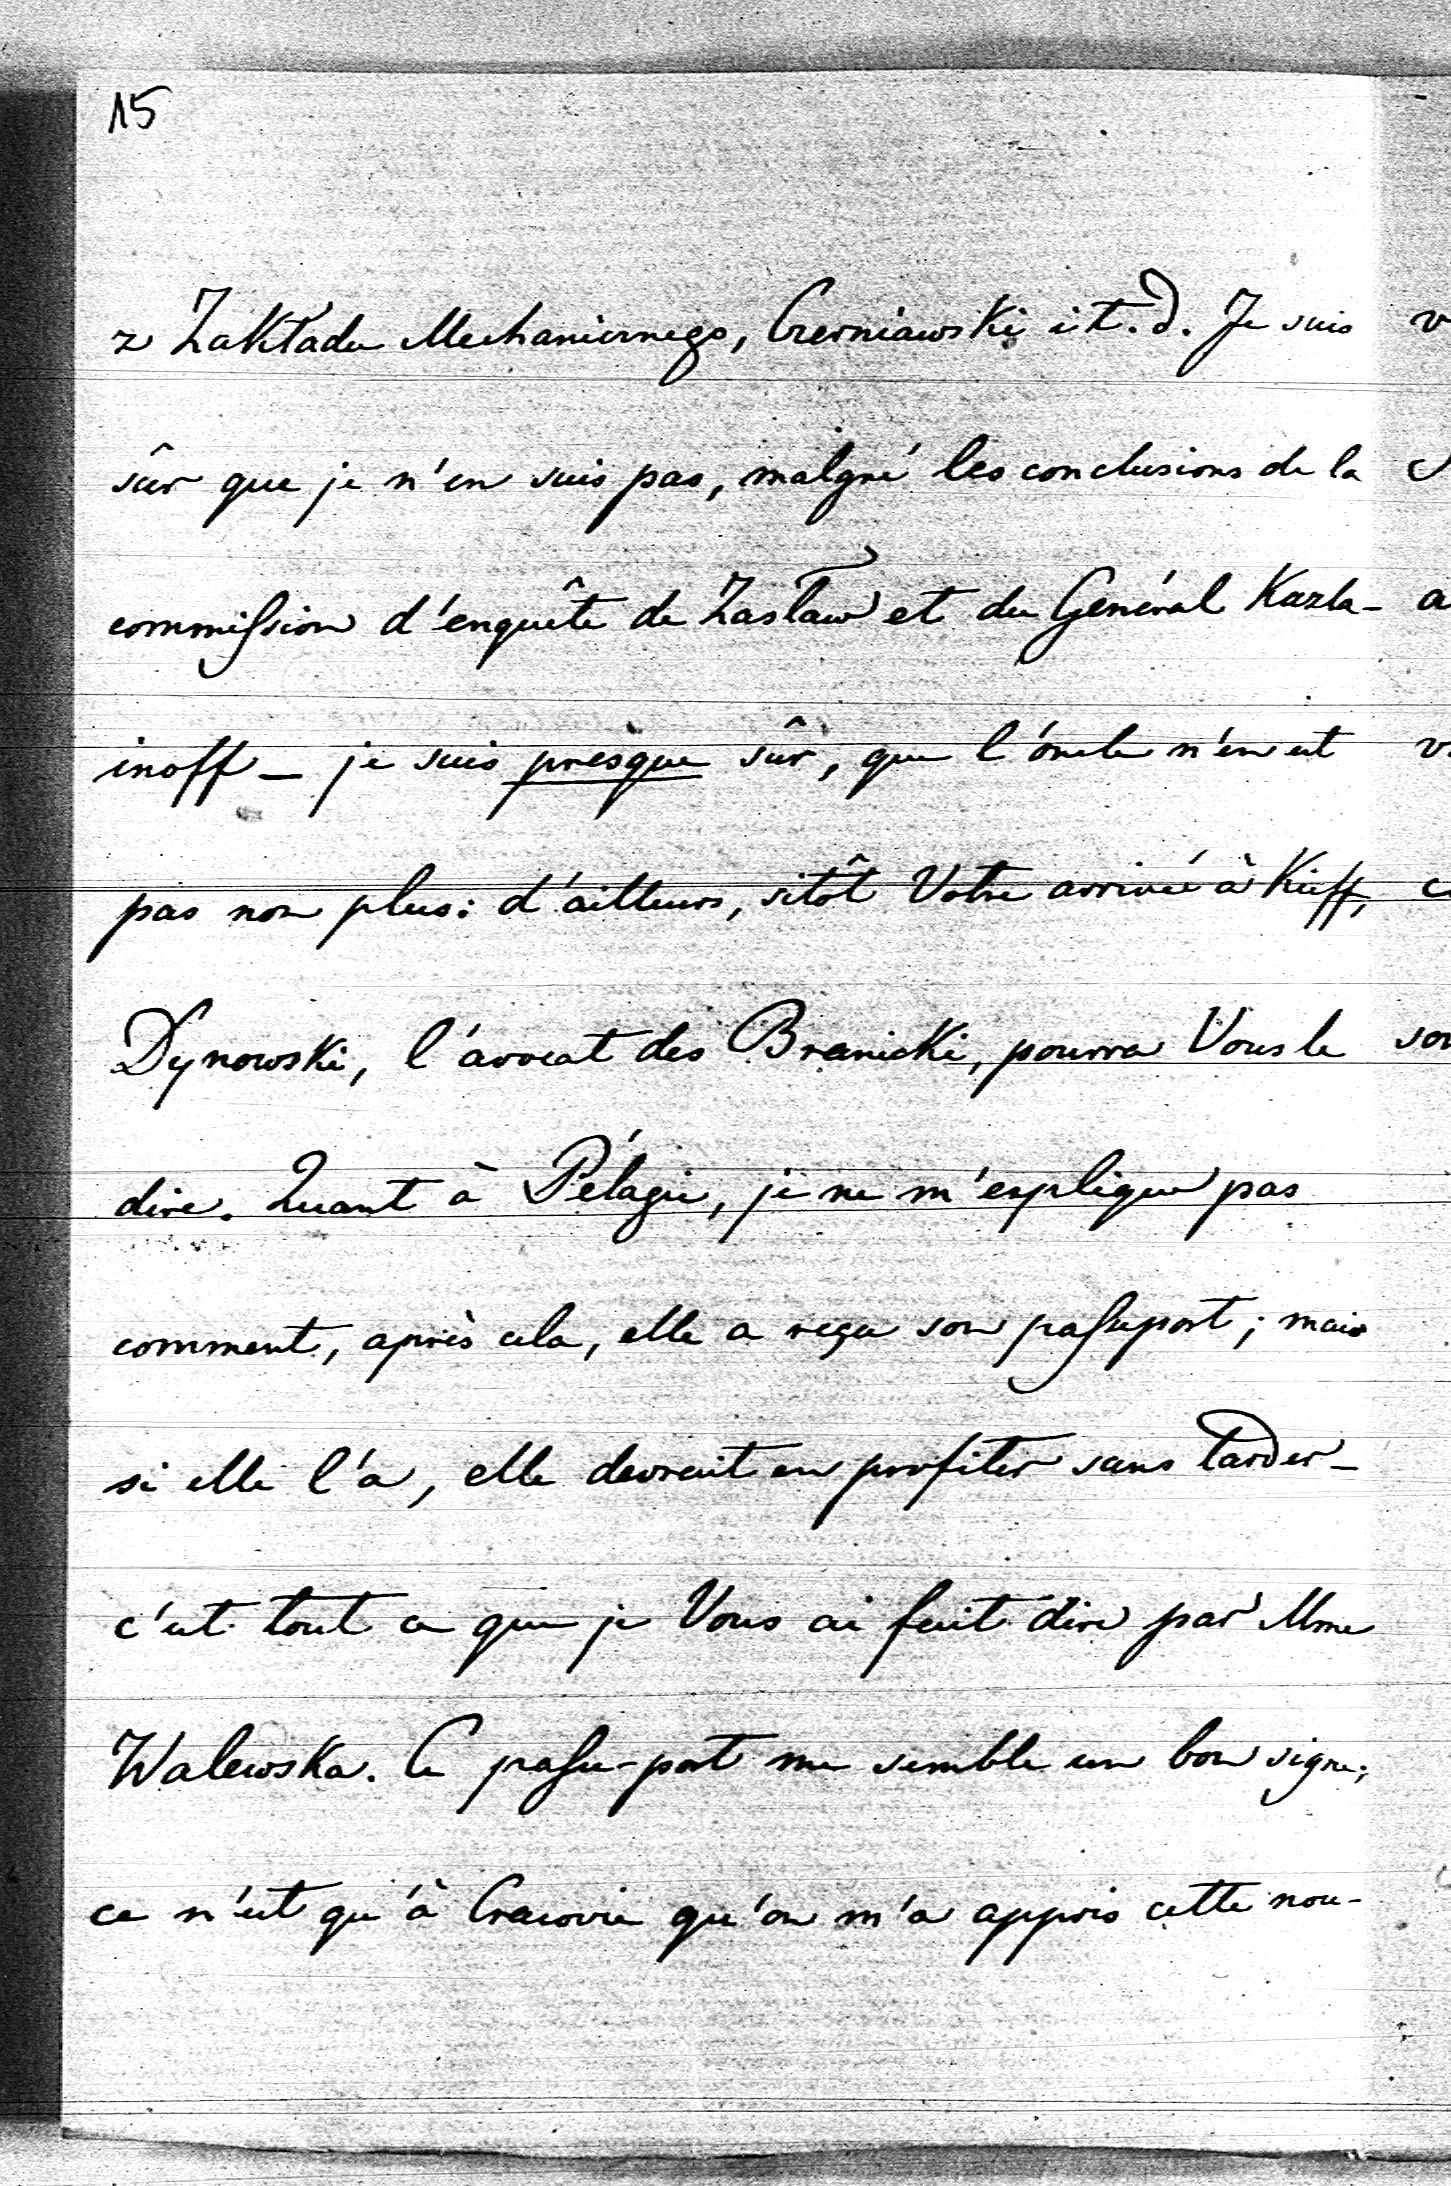 15
z Zakładu Mechanicznego, Czerniawski i t. d. Je suis
sûr que je n'en suis pas, malgré les conclusions de la
commission d'enquête de Zasław et du Général Kazla-
inoff – je suis presque sûr, que l'oncle n'en est
pas non plus: d'ailleurs, sitôt Votre arrivée à Kieff,
Dynowski, l'avocat des Branicki, pourra Vous le
dire. Quant à Pélagie, je ne m'explique pas
comment, après cela, elle a reçu son passeport; mais
si elle l'a, elle devrait en profiter sans tarder –
c'est tout ce que je Vous ai fait dire par Mme
Walewska. Ce passe-port me semble un bon signe;
ce n'est qu'à Cracovie qu'on m'a appris cette nou-